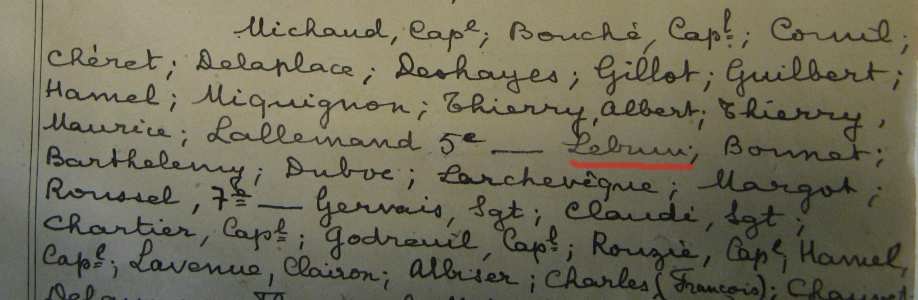 Michaud, Capl; Bouché, Capl; Cornil;
Chéret; Delaplace; Deshayes; Gillot; Guilbert;
Hamel; Miquignon; Thierry, Albert; Thierry,
Maurice; Lallemand 5e — Lebrun; Bonnet;
Barthelemy; Duboc; Larchevêque; Margot;
Roussel, 7e — Gervais, Sgt; Claude, Sgt;
Chartier, Capl; Godreuil, Capl; Rouzié, Capl; Hamel,
Capl; Lavenue, Clairon; Albiser; Charles (François); Chauvet